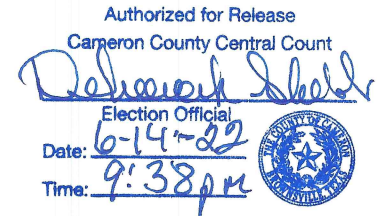 Authorized for Release
Cameron County Central Count
Election Official
Date: 6-14-22
Time: 9:38 pm
THE COUNTY OF CAMERON
BROWNSVILLE, TEXAS